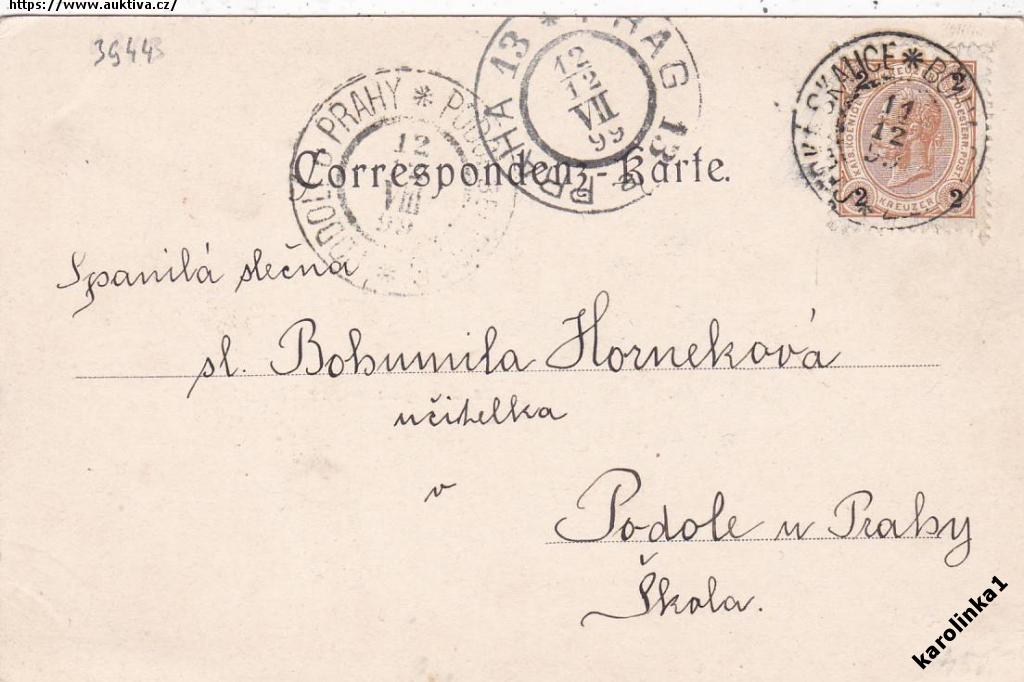 https://www.auktiva.cz/
39443
PRAHA 13 * PRAG 13
12
12
VII
99
PODOLÍ U PRAHY *
12
VIII
99
SKALICE * BÖHM
11
12
2 2
KREUZER
Correspondenz-Karte.
Spanilá slečna
sl. Bohumila Horneková
učitelka
v
Podole u Prahy
Škola.
karolinka1